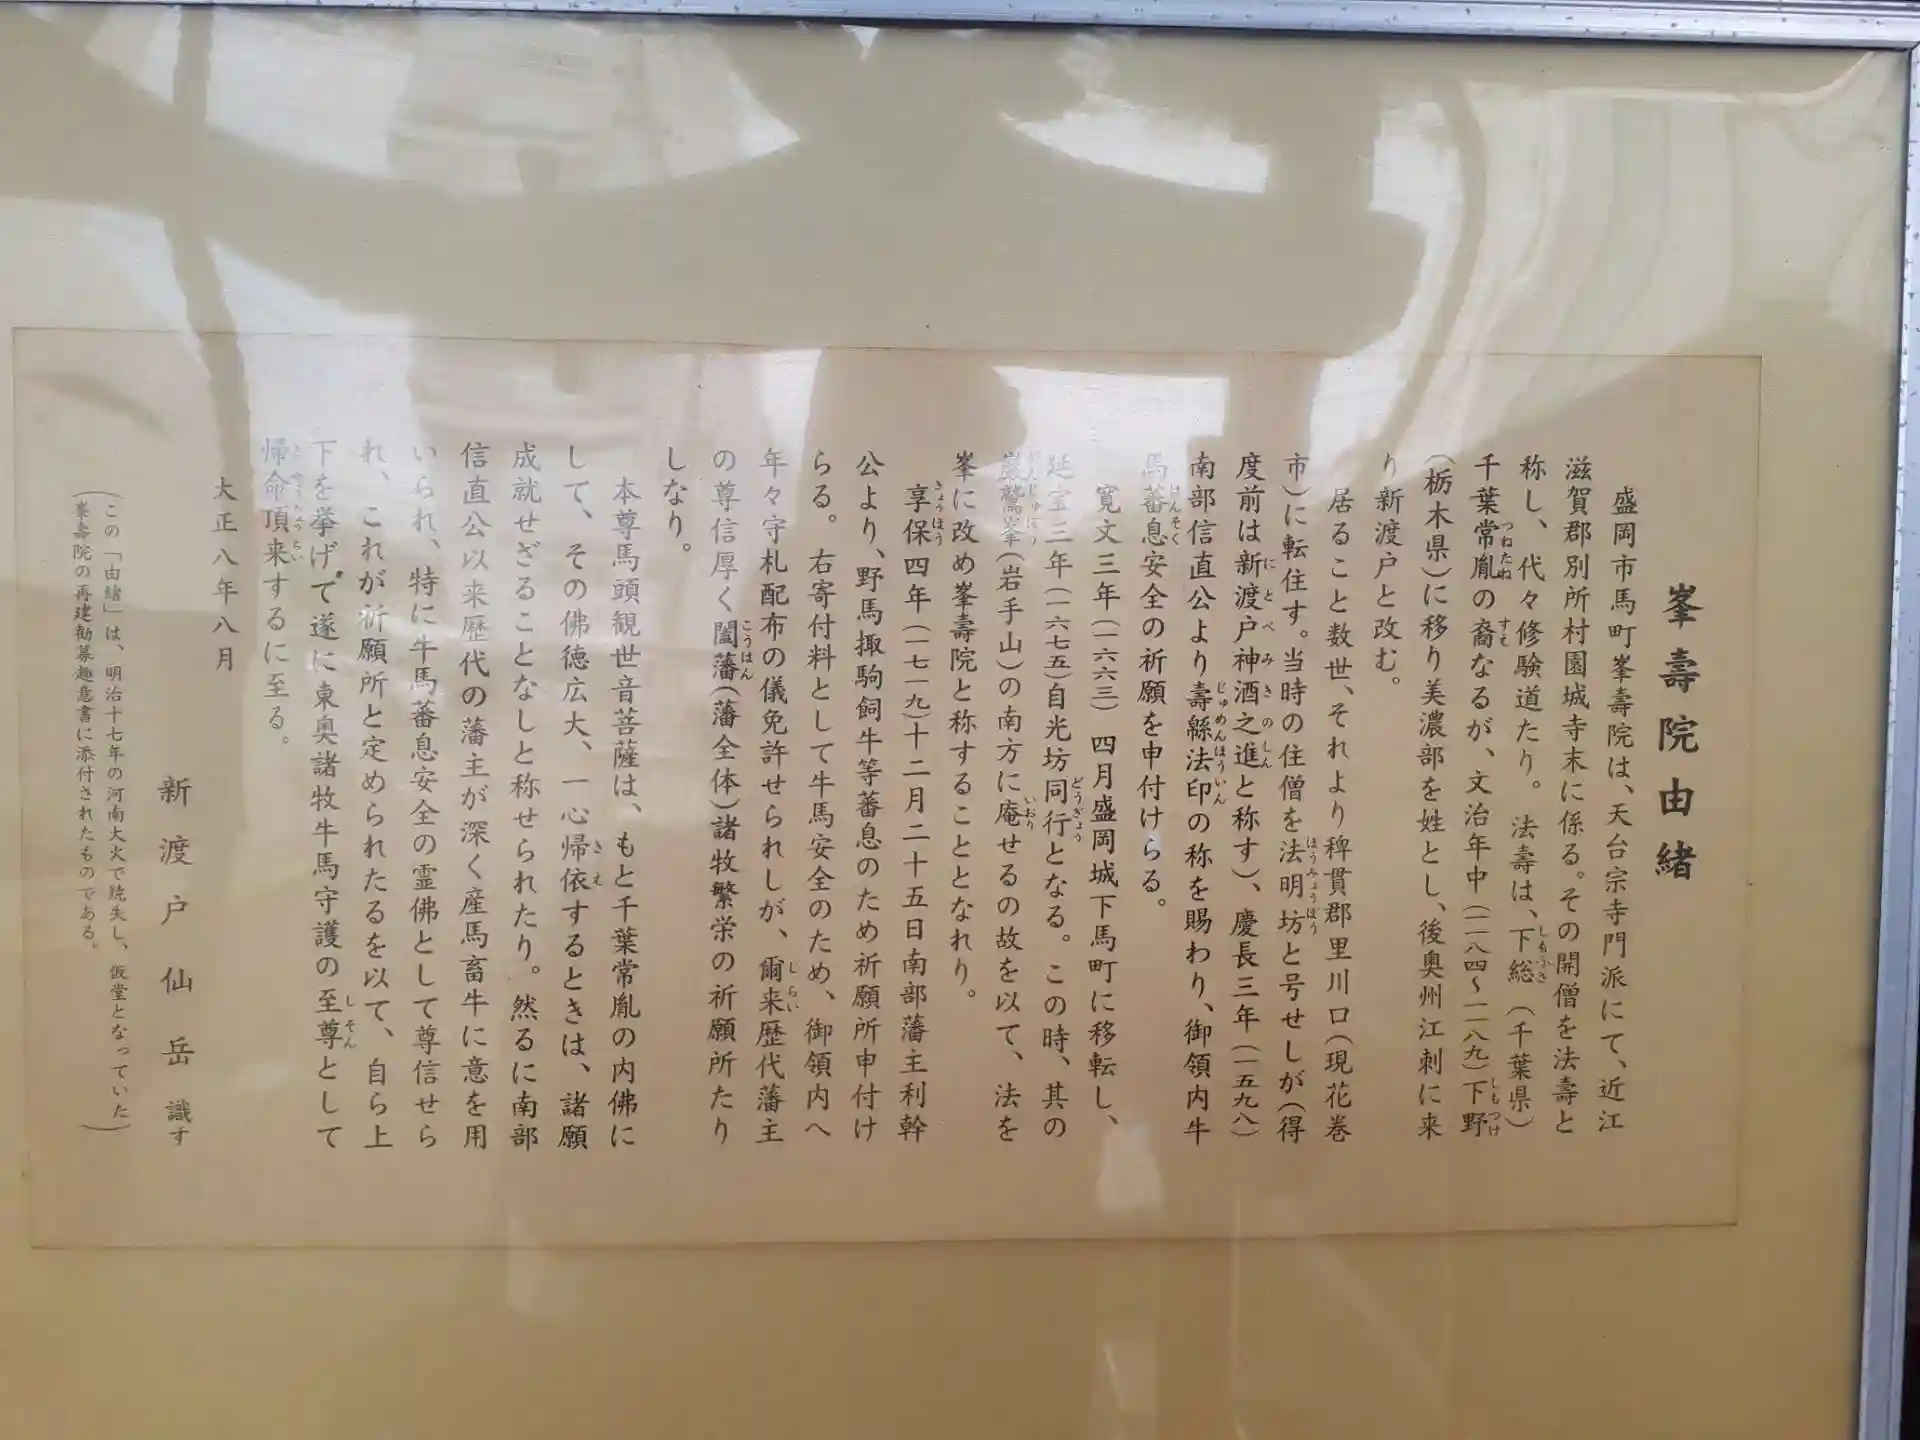 峯壽院由緒
盛岡市馬町峯壽院は、天台宗寺門派にて、近江
滋賀郡別所村園城寺末に係る。その開僧を法壽と
称し、代々修験道たり。法壽は、下総（千葉県）
千葉常胤の裔なるが、文治年中（一一八四～一一八九）下野
（栃木県）に移り美濃部を姓とし、後奥州江刺に来
り新渡戸と改む。
居ること数世、それより稗貫郡里川口（現花巻
市）に転住す。当時の住僧を法明坊と号せしが（得
度前は新渡戸神酒之進と称す）、慶長三年（一五九八）
南部信直公より壽緜法印の称を賜わり、御領内牛
馬蕃息安全の祈願を申付けらる。
寛文三年（一六六三）四月盛岡城下馬町に移転し、
延宝三年（一六七五）自光坊同行となる。この時、其の
巖鷲峯（岩手山）の南方に庵せるの故を以て、法を
峯に改め峯壽院と称することとなれり。
享保四年（一七一九）十二月二十五日南部藩主利幹
公より、野馬掫駒飼牛等蕃息のため祈願所申付け
らる。右寄付料として牛馬安全のため、御領内へ
年々守札配布の儀免許せられしが、爾来歴代藩主
の尊信厚く闔藩（藩全体）諸牧繁栄の祈願所たり
しなり。
本尊馬頭観世音菩薩は、もと千葉常胤の内佛に
して、その佛徳広大、一心帰依するときは、諸願
成就せざることなしと称せられたり。然るに南部
信直公以来歴代の藩主が深く産馬畜牛に意を用
いられ、特に牛馬蕃息安全の霊佛として尊信せら
れ、これが祈願所と定められたるを以て、自ら上
下を挙げて遂に東奥諸牧牛馬守護の至尊として
帰命頂来するに至る。
大正八年八月
新渡戸仙岳 識す
（この「由緒」は、明治十七年の河南大火で焼失し、仮堂となっていた
峯壽院の再建勧募趣意書に添付されたものである。）